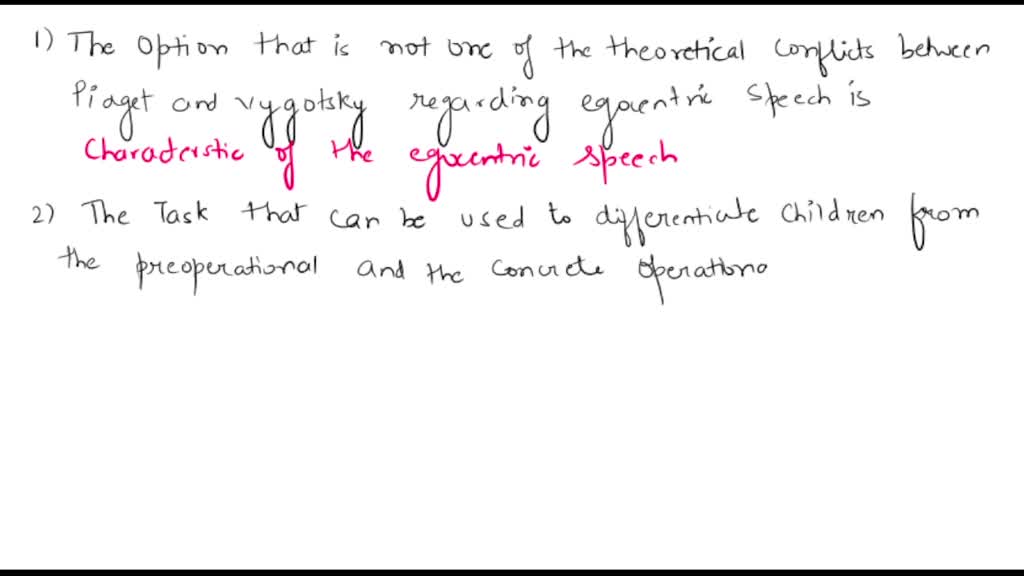 1) The Option that is not one of the theoretical conflicts between
Piaget and vygotsky regarding egocentric speech is
Characterstic of the egocentric speech
2) The Task that can be used to differentiate children from
the preoperational and the concrete operationa